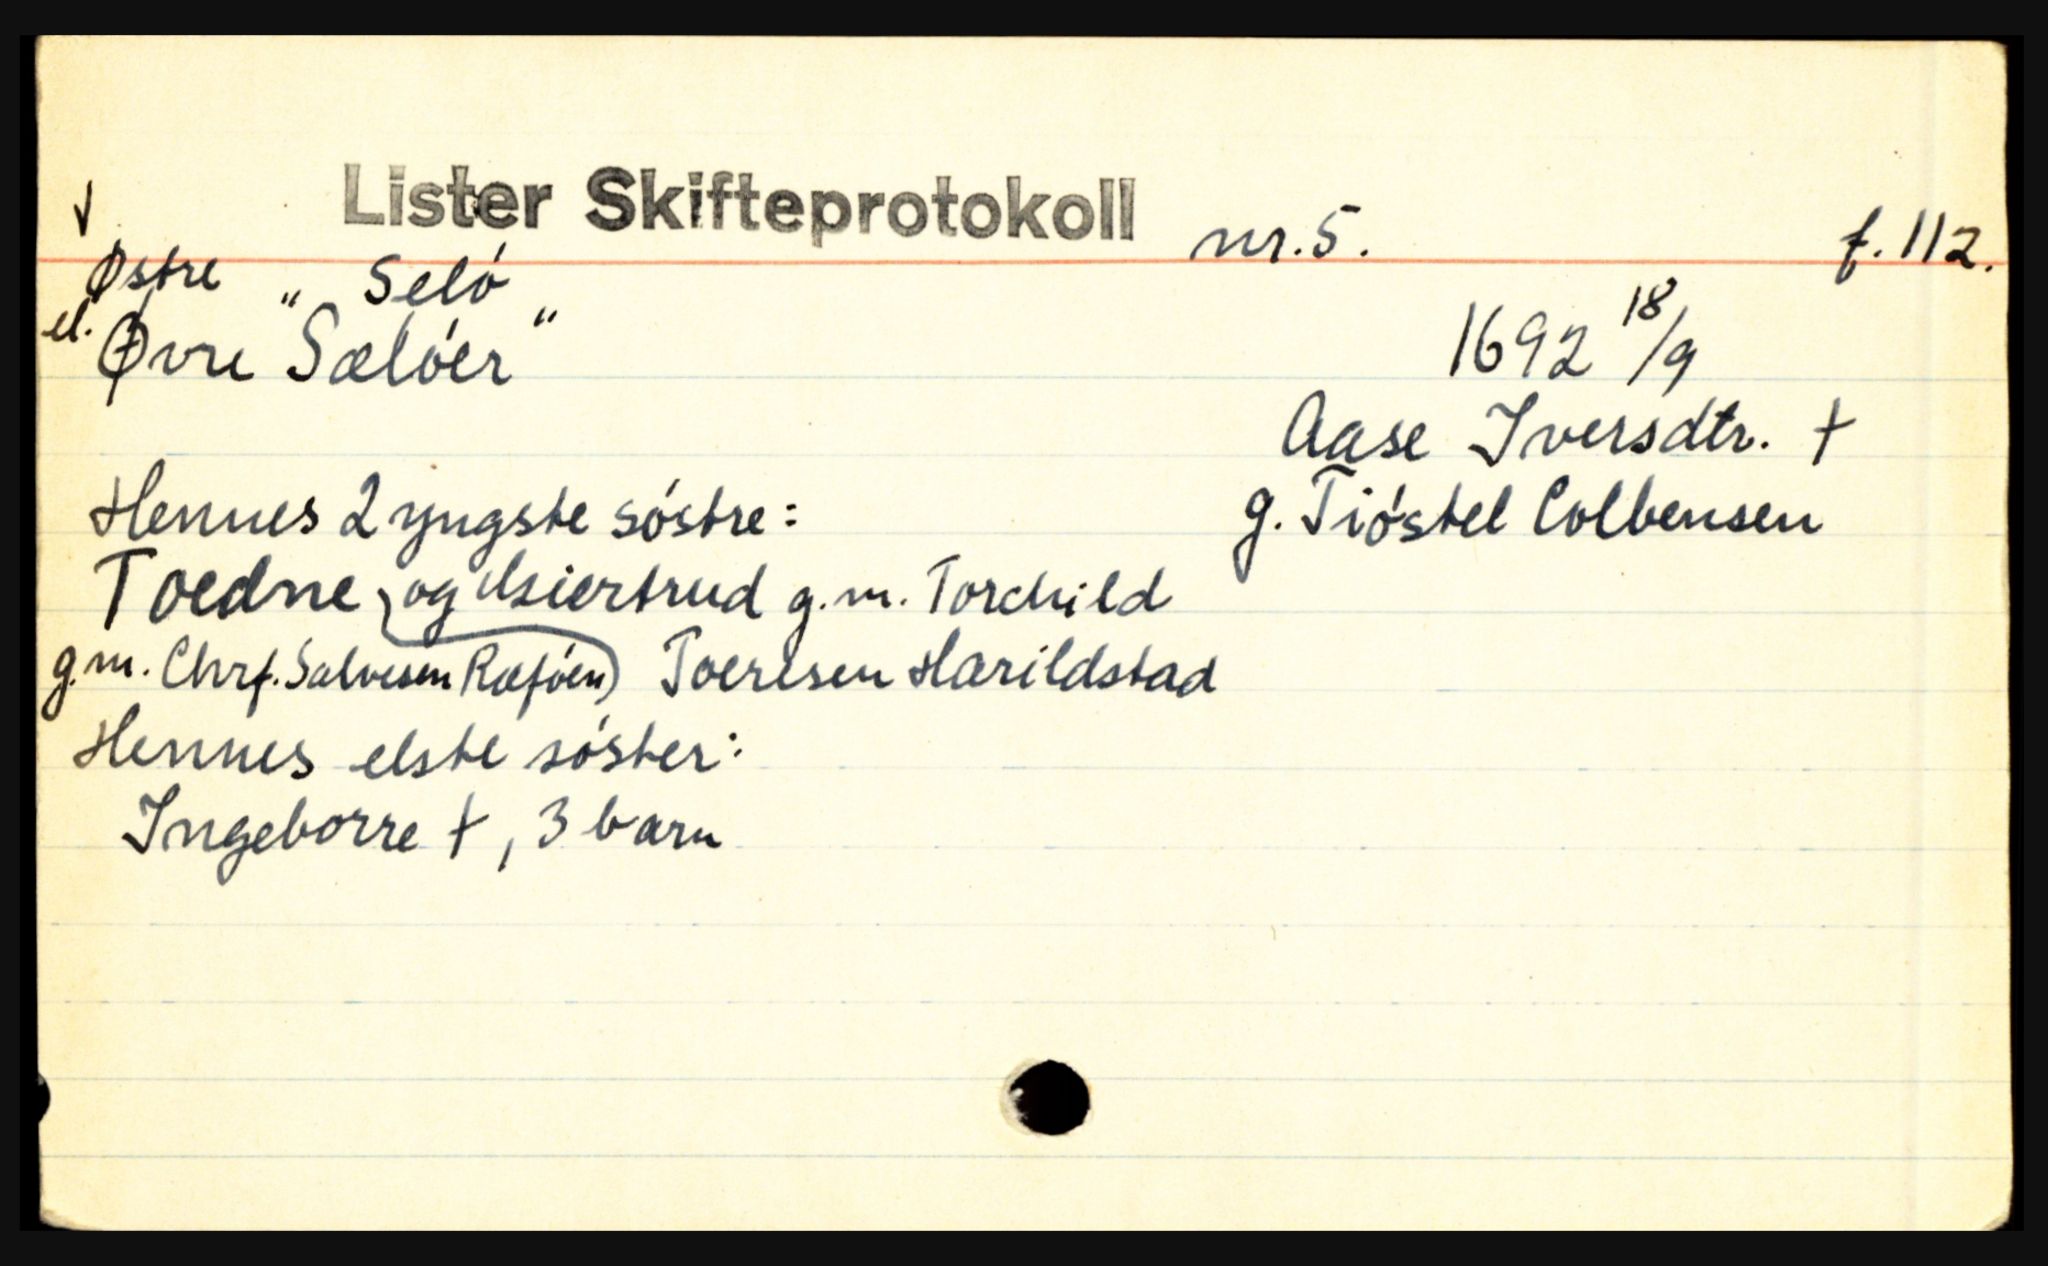 ✓
Lister Skifteprotokoll nr. 5. f. 112.
Østre " Seló
el. Øvre Sælóer "
1692 18/9
Aase Iversdtr. †
g. Tióstel Colbensen
Hennes 2 yngste sóstre:
Toedne og Usiertrud g.m. Torchild
g.m. Chrf. Salvesen Ræfóen) Toerisen Harildstad
Hennes elste sóster:
Ingeborre †, 3 barn